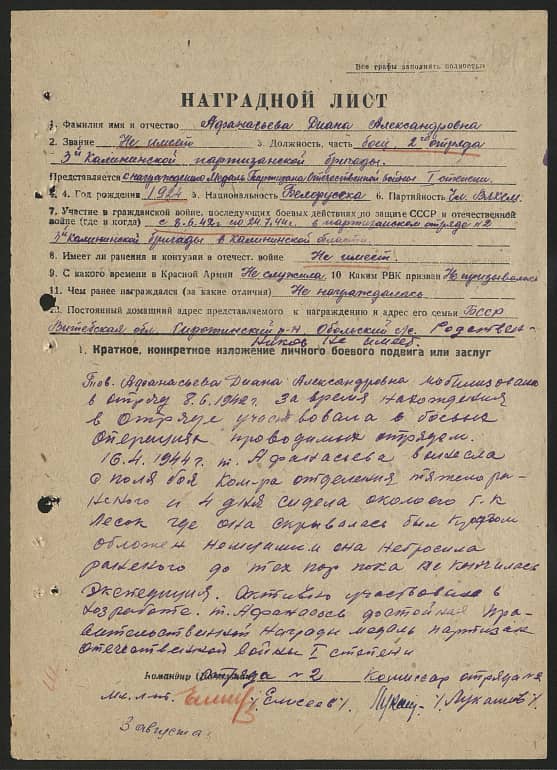 Все графы заполнять полностью
НАГРАДНОЙ ЛИСТ
1. Фамилия имя и отчество Афанасьева Диана Александровна
2. Звание Не имеет 3. Должность, часть боец 2го отряда
3й Калининской партизанской бригады.
Представляется к награждению Медаль Партизана Отечественной войны I степени.
4. Год рождения 1924 5. Национальность Белоруска 6. Партийность Чл. ВЛКСМ.
7. Участие в гражданской войне, последующих боевых действиях по защите СССР и отечественной
войне (где и когда) с 8.6.42г. по 24.7.44г. в партизанском отряде №2
3й Калининской бригады в Калининской области.
8. Имеет ли ранения и контузии в отечест. войне Не имеет
9. С какого времени в Красной Армии Не служила 10 Каким РВК призван Не призывалась
11. Чем ранее награждался (за какие отличия) Не награждалась
12. Постоянный домашний адрес представляемого к награждению и адрес его семьи БССР
Витебская обл. Сиротинский р-н Обольский с/с. Родствен-
ников не имеет.
1. Краткое, конкретное изложение личного боевого подвига или заслуг
Тов. Афанасьева Диана Александровна мобилизована
в отряд 8.6.1942г. За время нахождения
в отряде участвовала в боевых
операциях проводимых отрядом.
16.4.1944г. т. Афанасьева вынесла
с поля боя ком-ра отделения тяжело ра-
нского и 4 дня сидела около его т.к
лесок где она скрывалась был кругом
обложен немцами и она не бросила
раненого до тех пор пока не кончилась
экспедиция. Активно участвовала в
хозработе. т. Афанасьев достойная пра-
вительственной награды медаль партизан
отечественной войны I степени
Командир отряда №2 Комиссар отряда №2
Мл. л-т. /Елисеев/. /Лукашов/.
3 августа